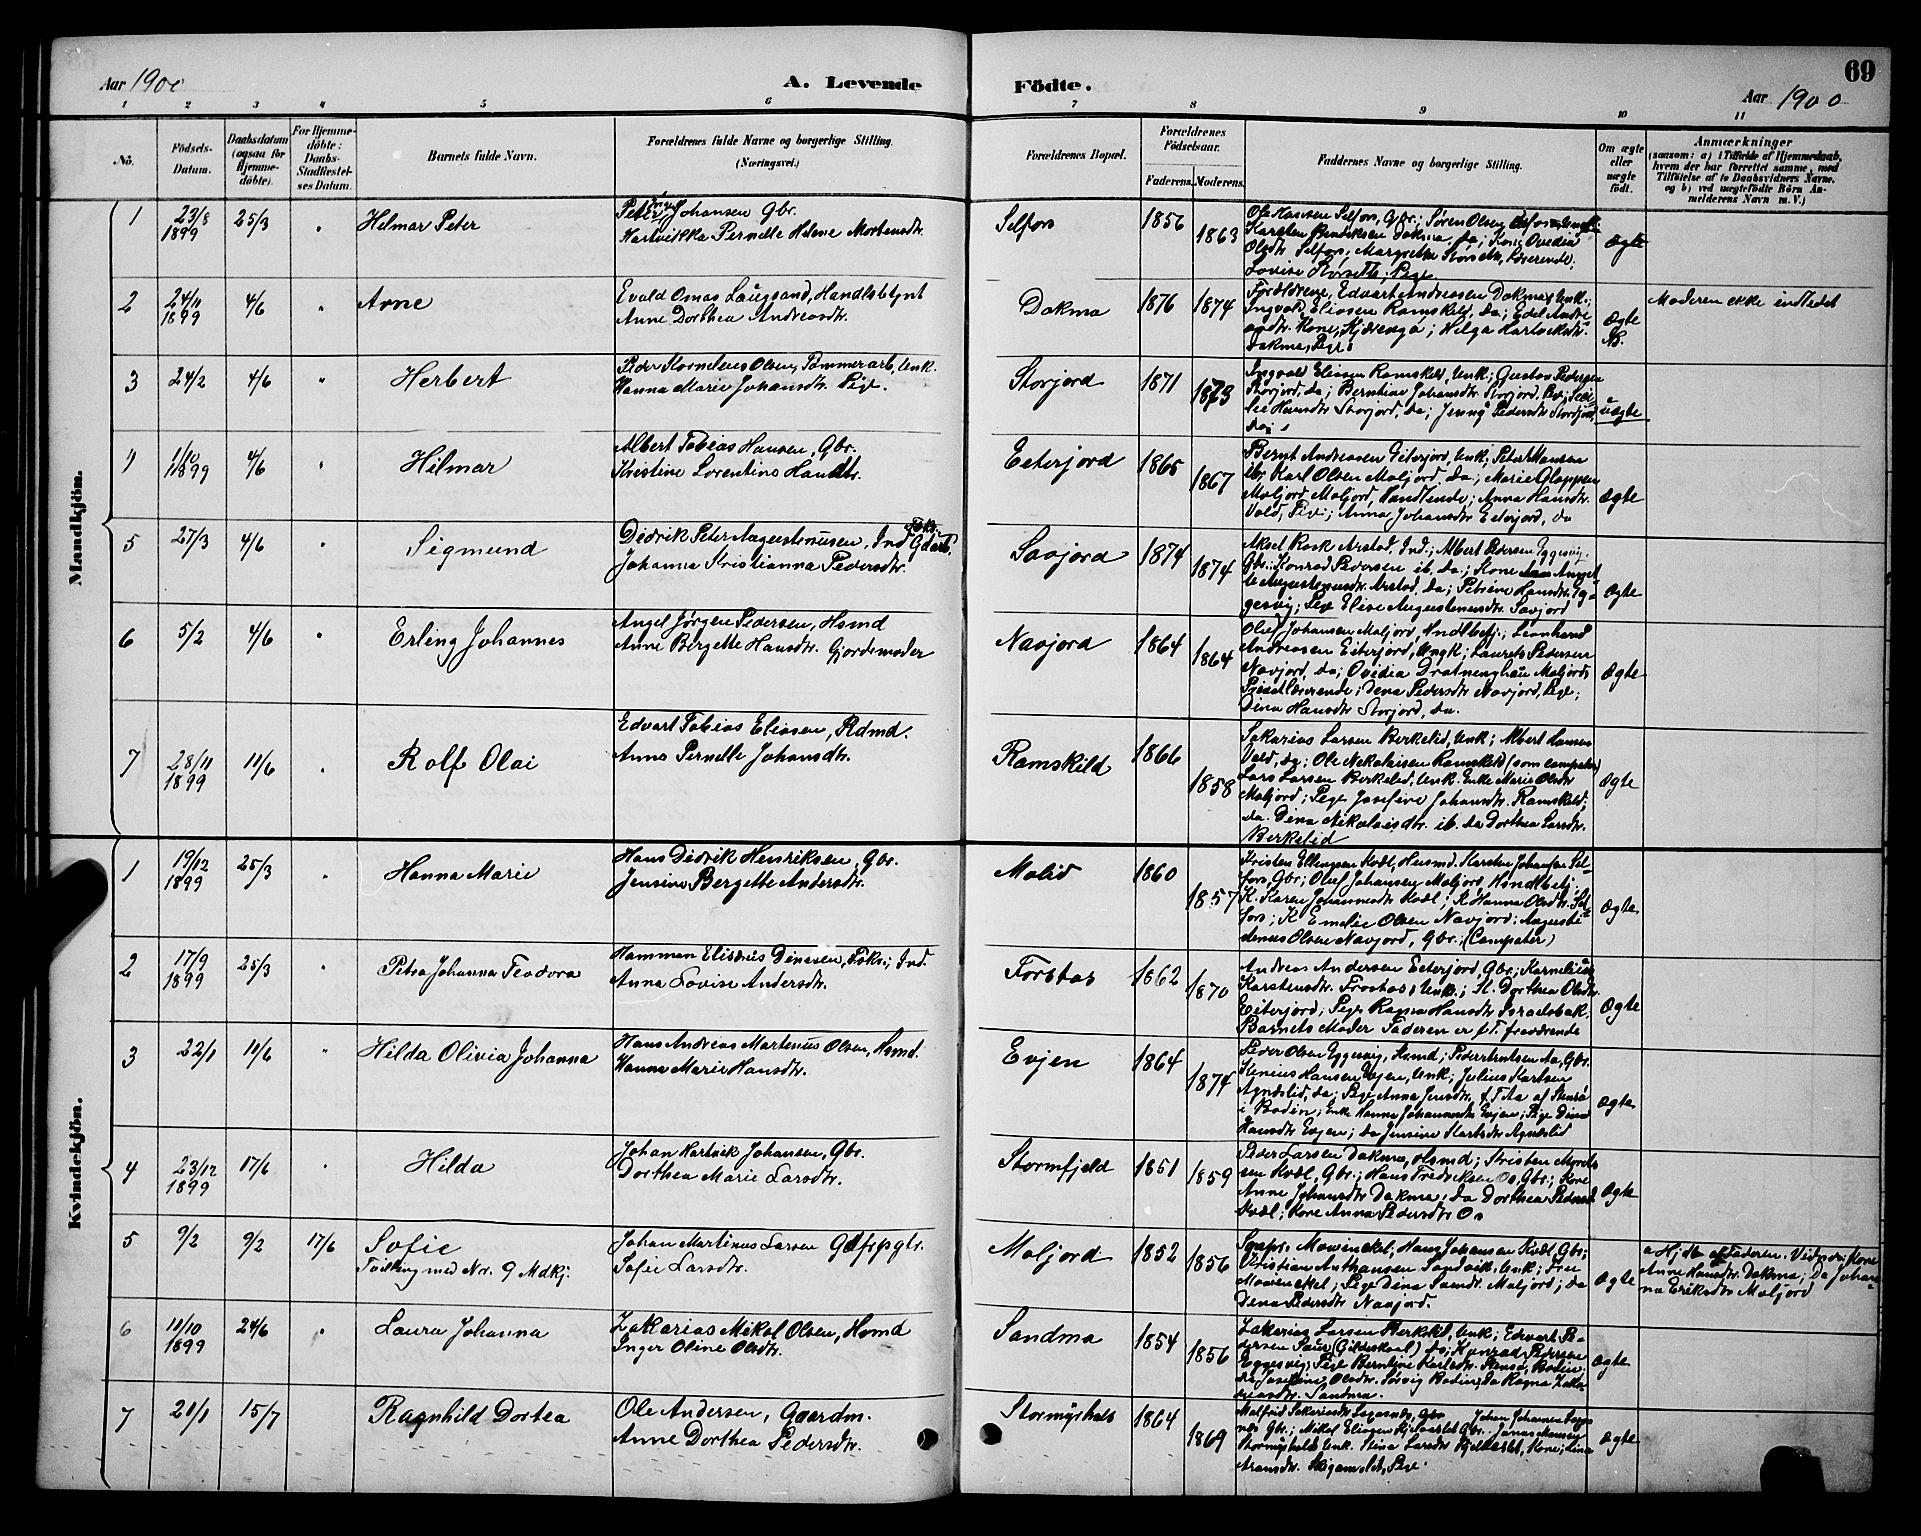 Aar 1900
A. Levende
Födte.
Aar 1900
69
1 2 3 4 5 6 7 8 9 10 11
No.
Födsels-
Datum.
Daabsdatum
(ogsaa for
Hjemme-
döbte).
For Hjemme-
döbte:
Daabs-
Stadfæstel-
ses Datum.
Barnets fulde Navn.
Forældrenes fulde Navne og borgerlige Stilling.
(Næringsvei.)
Forældrenes Bopæl.
Forældrenes
Födselsaar.
Faderens. Moderens.
Faddernes Navne og borgerlige Stilling.
Om ægte
eller
uægte
födt.
Anmærkninger
(saasom: a) i Tilfælde af Hjemmedaab,
hvem der har forrettet samme, med
Tilföielse af to Daabsvidners Navne,
og b) ved uægtefödte Börn An-
melderens Navn m. V.)
Mandkjön.
1 23/8 1899 25/3 " Hilmar Peter
Peter Johansen Gbr.
Hartvikka Pernelle Helene Mortensdtr.
Selfors 1856 1863
Ole Hansen Selfors, Gbr; Søren Olsen
Karsten Bendiksen Dokma, da; Kone Ovedia
Olsdtr Selfors, Margrethe Storseth, Lærerinde,
Lovise Storseth, Pige
ægte
2 24/11 1899 4/6 " Arne
Evald Omas Laugsand, Handlsbetjnt
Anne Dorthea Andreasdtr.
Dokma 1876 1874
Forældrene, Edvart Andreassen Dokma, Unk.;
Ingvald Eliasen Ramskild, da; Edel Andre
asdtr. Kone, Kjærenga; Helga Hartviksdtr.
Dokma, Pige
ægte
Moderen ikke indledet
3 24/2 4/6 " Herbert
Peder Kornelius Olsen, Tømmerarb, Unk.
Hanna Marie Johansdtr. Pige.
Storjord 1871 1873
Ingvald Eliasen Ramskild, Unk; Gustav Pedersen
Storjord, da; Berntine Johansdtr Storjord, Pige;
Hansdtr Storjord, da; Jenny Pedersdtr Storjord,
da
uægte
4 1/10 1899 4/6 " Hilmar
Albert Tobias Hansen, Gbr.
Kristine Lorentine Hansdtr.
Eiterjord 1865 1867
Bernt Andreassen Eiterjord, Unk; Peter Hansen
ib; Karl Olsen Moljord, da; Marie Gloppen
Moljord, Handlende; Anna Hansdtr.
Vold, Pige; Anna Johansdtr Eiterjord, da
ægte
5 27/3 4/6 " Sigmund
Didrik Peter Augustinusen, Ind Fsk. Gdarb.
Johanna Kristianna Pedersdtr.
Savjord 1874 1874
Aksel Rosk Arstad, Ind.; Albert Pedersen Eggesvig
Gbr; Konrad Pedersen ib. da; Kone Annet-
te Augustinusdtr Arstad, da; Petrine Hansdtr Eg-
gesvig; Pige Elise Augustinusdtr Savjord
ægte
6 5/2 4/6 " Erling Johannes
Angel Jørgen Pedersen, Hsmd
Anne Bergette Hansdtr. Gjordemoder
Navjord 1864 1864
Oluf Johansen Moljord, Hndlbetj.; Leonhard
Andreassen Eiterjord, Ungk; Laurets Pedersen
Navjord, da; Ovedia Dratninghau Moljord,
Privatlærerinde; Dena Pedersdtr Navjord, Pige;
Dina Hansdtr Storjord, da.
ægte
7 28/11 1899 10/6 " Rolf Olai
Edvart Tobias Eliasen, Rdmd.
Anna Pernelle Johansdtr.
Ramskild 1866 1858
Sakarias Larsen Berkelid, Unk; Albert Hansen
Vold, da; Ole Nikolaisen Ramskild (som compater)
Lars Larsen Berkelid, Unk. Enke Marie Olsdtr
Moljord; Pige Josefine Johansdtr. Ramskild;
da. Dina Nikolaisdtr. ib. da Dorthea Larsdtr.
Berkelid
ægte
Kvindekjön.
1 19/12 1899 25/3 " Hanna Marie
Hans Didrik Henriksen, Gbr.
Jensine Bergette Andersdtr.
Molid 1860 1857
Kristen Ellingsen Kvæl, Husmd. Karsten Johansen Sel-
fors, Gbr; Oluf Johansen Moljord, Hindlbetj.
K. Karen Johannesdtr Kvæl; K. Hanna Olsdtr. Sel-
fors; K Emelie Olsen Navjord; Augusti-
dinus Olsen Navjord, Gbr; (Compater)
ægte
2 17/9 1899 25/3 " Petra Johanna Teodora
Hamman Elisæus Dinesen, Fsk; Ind.
Anna Lovise Andersdtr.
Forstas 1862 1870
Andreas Andersen Eiterjord, Gbr; Kornelius
Karstensdtr. Frostas, Unk; K. Dorthea Olsdtr.
Eiterjord; Pige Ragna Hansdtr Israelsbak,
Barnets Moder Faderen er f.T. fraværende
ægte
3 22/1 10/6 " Hilda Olivia Johanna
Hans Andreas Martinus Olsen, Hsmd.
Hanna Marie Hansdtr.
Evjen 1864 1874
Peder Olsen Eggesvig, Hsmd; Peder Arntsen Aa, Gbr.
Stenius Hansen Evjen, Unk; Julius Karlsen
Agnæslid, da; Pige Anna Jensdtr, f.T. Aa af Stensø
i Bodin; Enke Hanna Johannesdtr Evjen; Pige Dina
Hansdtr Evjen; da Jensine Karlsdtr Agnæslid
ægte
4 23/12 1899 17/6 " Hilda
Johan Hartvik Johansen, Gbr.
Dorthea Marie Larsdtr.
Stormfjeld 1851 1859
Peder Larsen Dakma, Hsmd; Kristen
sen Kvæl, Gbr; Hans Fredriksen Os, Gbr; Kone
Anne Johansdtr Dakma; da Dorthea Pedersd
Kvæl; Kone Anna Pedersdtr Os
ægte
5 9/2 9/2 17/6 Sofie
Tvilling med Nr. 9 Mdkj.
Johan Martinus Larsen
Sofie Larsdtr.
Moljord 1852 1856
Mowinckel, Hans Johansen Kvæl Gbr;
Kristian Anthansen Sandvik, Unk; Fru
Mowinckel; Pige Dina Jensdtr. Moljord; da
Dina Pedersdtr Navjord.
ægte
a Hjdb af Faderen. Vidner: Kone
Anne Hansdtr. Dakma; Da Johan-
na Eriksdtr Moljord
6 11/10 1899 24/6 " Laura Johanna
Zakarias Mikal Olsen, Hsmd
Inger Oline Olsdtr.
Sandma 1854 1856
Zakarias Larsen Berkeli, Unk; Edvart Pe-
dersen Saur (Gildeskaal) da; Konrad Pedersen
Eggesvig; Pige Berntine Karlsdtr. Stensø, Bodin
da Josefine Olsdtr. Sørvig Bodin, da Ragna Zaka-
riasdtr. Sandma.
ægte
7 21/1 15/7 Ragnhild Dortea
Ole Andersen, Gaardm.
Anne Dorthea Pedersdtr.
Stormyrhals 1864 1869
Gbr. Johan Johansen
Gbr.; Mikal Eliasen Gbr. Jonas Hansen
Stormyrhals Unk. Stina Larsdtr Kone;
Pige.
ægte